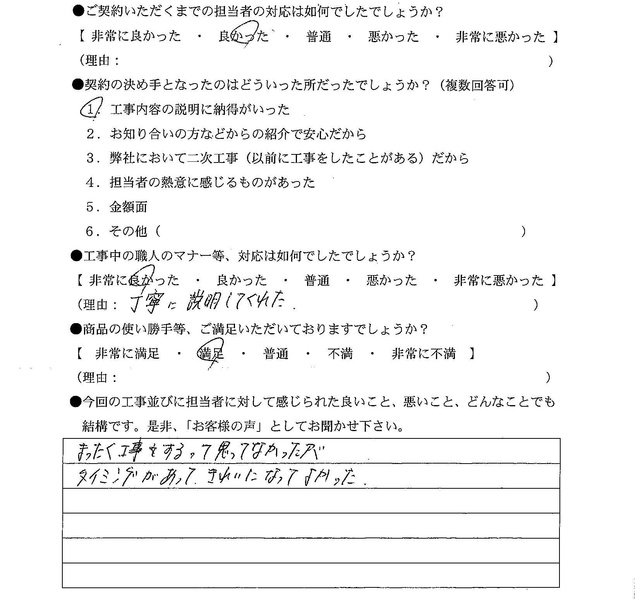 ●ご契約いただくまでの担当者の対応は如何でしたでしょうか？
【 非常に良かった ・ 良かった ・ 普通 ・ 悪かった ・ 非常に悪かった 】
（理由： ）
●契約の決め手となったのはどういった所だったでしょうか？（複数回答可）
１．工事内容の説明に納得がいった
２．お知り合いの方などからの紹介で安心だから
３．弊社において二次工事（以前に工事をしたことがある）だから
４．担当者の熱意に感じるものがあった
５．金額面
６．その他（ ）
●工事中の職人のマナー等、対応は如何でしたでしょうか？
【 非常に良かった ・ 良かった ・ 普通 ・ 悪かった ・ 非常に悪かった 】
（理由： 丁寧に説明してくれた. ）
●商品の使い勝手等、ご満足いただいておりますでしょうか？
【 非常に満足 ・ 満足 ・ 普通 ・ 不満 ・ 非常に不満 】
（理由： ）
●今回の工事並びに担当者に対して感じられた良いこと、悪いこと、どんなことでも
結構です。是非、「お客様の声」としてお聞かせ下さい。
まったく工事をするって思ってなかったが
タイミングがあって きれいになってよかった.